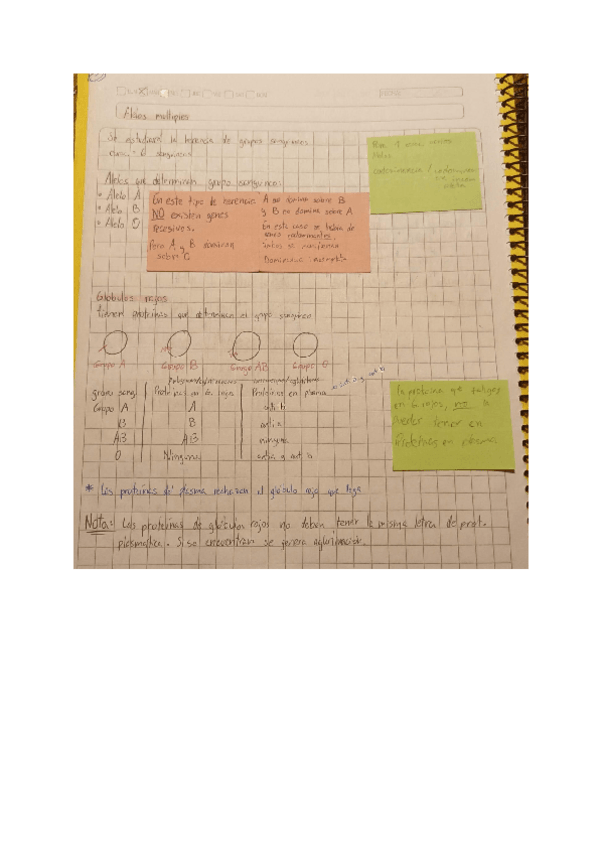 Alelos multiples
Se estudiará la herencia de grupos sanguíneos
sanguíneos
Alelos que determinan grupo sanguíneo:
* Alelo A
* Alelo B
* Alelo O
En este tipo de herencia
NO existen genes
recesivos.
Pero A y B dominan
sobre O
A no domina sobre B
y B no domina sobre A
En este caso se habla de
genes codominantes.
ambos se manifiestan
Dominancia incompleta
codominancia /
Globulos rojos
tienen proteínas que determinan el grupo sanguíneo
Grupo A Grupo B Grupo AB Grupo O
grupo sang. Proteínas en G. rojos Proteínas en plasma
Grupo A A anti b
B B anti a
AB AB ninguna
O Ninguna anti a y anti b
la proteína que tengas
en G rojos, no la
puedes tener en
Proteínas en plasma
* Las proteínas de plasma rechazan el glóbulo rojo que llega
Nota: Las proteínas de glóbulos rojos no deben tener la misma letra de prot.
plasmática. Si se encuentran se genera aglutinación.